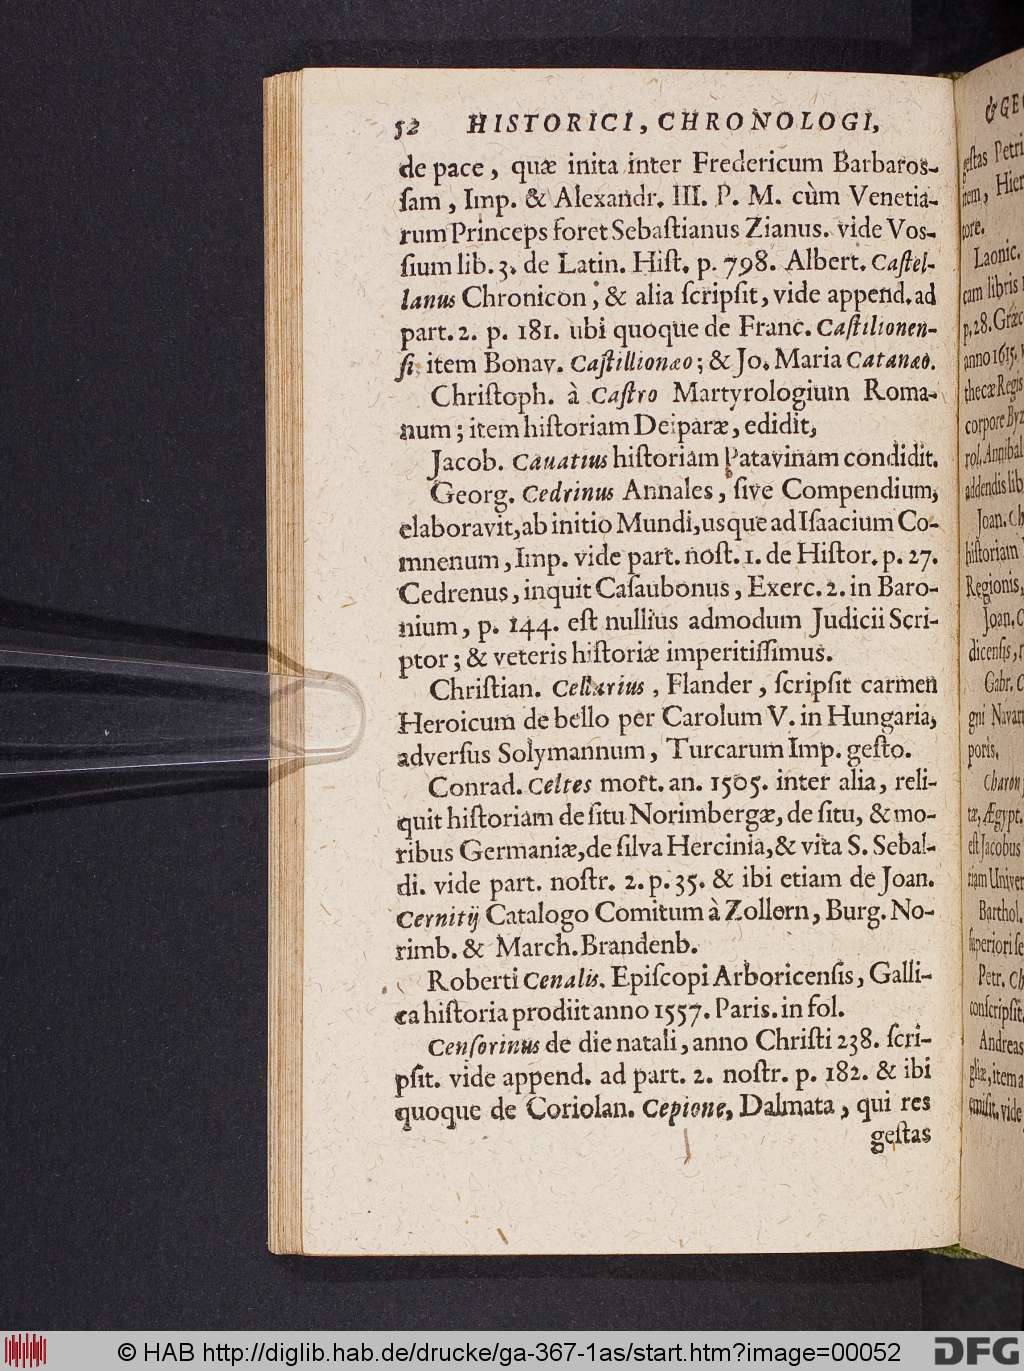 52 HISTORICI, CHRONOLOGI,
de pace, quæ inita inter Fredericum Barbaros-
ſam, Imp. & Alexandr. III. P. M. cùm Venetia-
rum Princeps foret Sebaſtianus Zianus. vide Vos-
ſium lib. 3. de Latin. Hiſt. p. 798. Albert. Caſtel-
lanus Chronicon, & alia ſcripſit, vide append. ad
part. 2. p. 181. ubi quoque de Franc. Caſtilionen-
ſi item Bonav. Caſtillionæo; & Jo. Maria Catanæo.
Chriſtoph. à Caſtro Martyrologium Roma-
num; item hiſtoriam Deiparæ, edidit,
Jacob. Cavatius hiſtoriam Patavinam condidit.
Georg. Cedrinus Annales, ſive Compendium,
elaboravit, ab initio Mundi, usque ad Iſaacium Co-
mnenum, Imp. vide part. noſt. 1. de Hiſtor. p. 27.
Cedrenus, inquit Caſaubonus, Exerc. 2. in Baro-
nium, p. 144. eſt nullius admodum Judicii Scri-
ptor; & veteris hiſtoriæ imperitiſſimus.
Chriſtian. Cellarius, Flander, ſcripſit carmen
Heroicum de bello per Carolum V. in Hungaria,
adverſus Solymannum, Turcarum Imp. geſto.
Conrad. Celtes mort. an. 1505. inter alia, reli-
quit hiſtoriam de ſitu Norimbergæ, de ſitu, & mo-
ribus Germaniæ, de ſilva Hercinia, & vita S. Sebal-
di. vide part. noſtr. 2. p. 35. & ibi etiam de Joan.
Cernitij Catalogo Comitum à Zollern, Burg. No-
rimb. & March. Brandenb.
Roberti Cenalis. Epiſcopi Arboricenſis, Galli-
ca hiſtoria prodiit anno 1557. Paris. in fol.
Cenſorinus de die natali, anno Chriſti 238. ſcri-
pſit. vide append. ad part. 2. noſtr. p. 182. & ibi
quoque de Coriolan. Cepione, Dalmata, qui res
geſtas
& GE
geſtas Petri
item, Hier
pore.
Laonic.
cam libris
p. 28. Græc
anno 1615.
thecæ Regis
corpore Byz
rol. Annibal
addendis lib
Joan. Ch
hiſtoriam
Regionis,
Joan. C
dicenſis,
Gabr. C
gni Navar
poris.
Charon
tæ, Ægypt.
eſt Jacobus
riam Univer
Barthol.
ſuperiori ſe
Petr. Ch
conſcripſit.
Andreas
gliæ, item a
emiſit. vide
© HAB http://diglib.hab.de/drucke/ga-367-1as/start.htm?image=00052
DFG